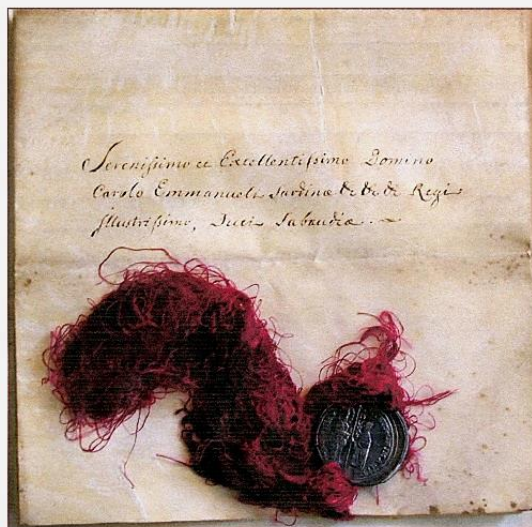 Serenissimo et Excellentissimo Domino
Carolo Emmanueli Sardinæ &c &c &c Regi
Illustrissimo, Duci Sabaudiæ.